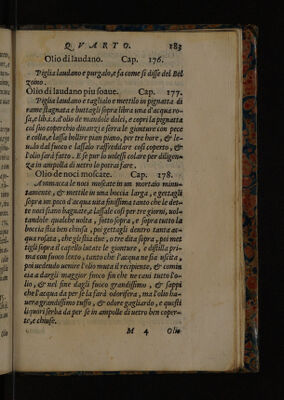 QVARTO. 183
Olio di laudano. Cap. 176.
Piglia laudano e purgalo, e fa come si disse del Bel
zoino.
Olio di laudano piu soaue. Cap. 177.
Piglia laudano e taglialo e mettilo in pignatta di
rame stagnata e buttagli sopra libra una d'acqua ro-
sa, e lib. i. s. d'olio de mandole dolci, e copri la pignatta
col suo coperchio dinanzi e serra le gionture con pece
e colla, e lassa bollire pian piano, per tre hore, & le-
ualo dal fuoco e lassalo raffreddare cosi coperto, &
l'olio sarà fatto. E se pur lo uolessi colare per diligen-
za in ampolla di uetro lo potrai fare.
Olio de noci moscate. Cap. 178.
Ammacca le noci moscate in un mortaio minu-
tamente, & mettile in una boccia larga, e gettagli
sopra un poco d'acqua uita finissima tanto che le det-
te noci siano bagnate, e lassale cosi per tre giorni, uol-
tandole qualche uolta, sotto sopra, e sopra tutto la
boccia stia ben chiusa, poi gettagli dentro tanta ac-
qua rosata, che gli stia due, o tre dita sopra, poi met
tigli sopra il capello lutate le gionture, e destilla pri-
ma con fuoco lento, tanto che l'acqua ne sia uscita,
poi uedendo uenire l'olio muta il recipiente, & comin
cia a dargli maggior fuoco fin che ne cavi tutto l'o-
lio, & nel fine dagli fuoco grandissimo, & sappi
che l'acqua da per se la farà odorifera, ma l'olio ha-
uera grandissimo tuffo, & odore gagliardo, e questi
liquori serba da per se in ampolle di uetro ben coper-
te, e chiuse.
M 4 Olio